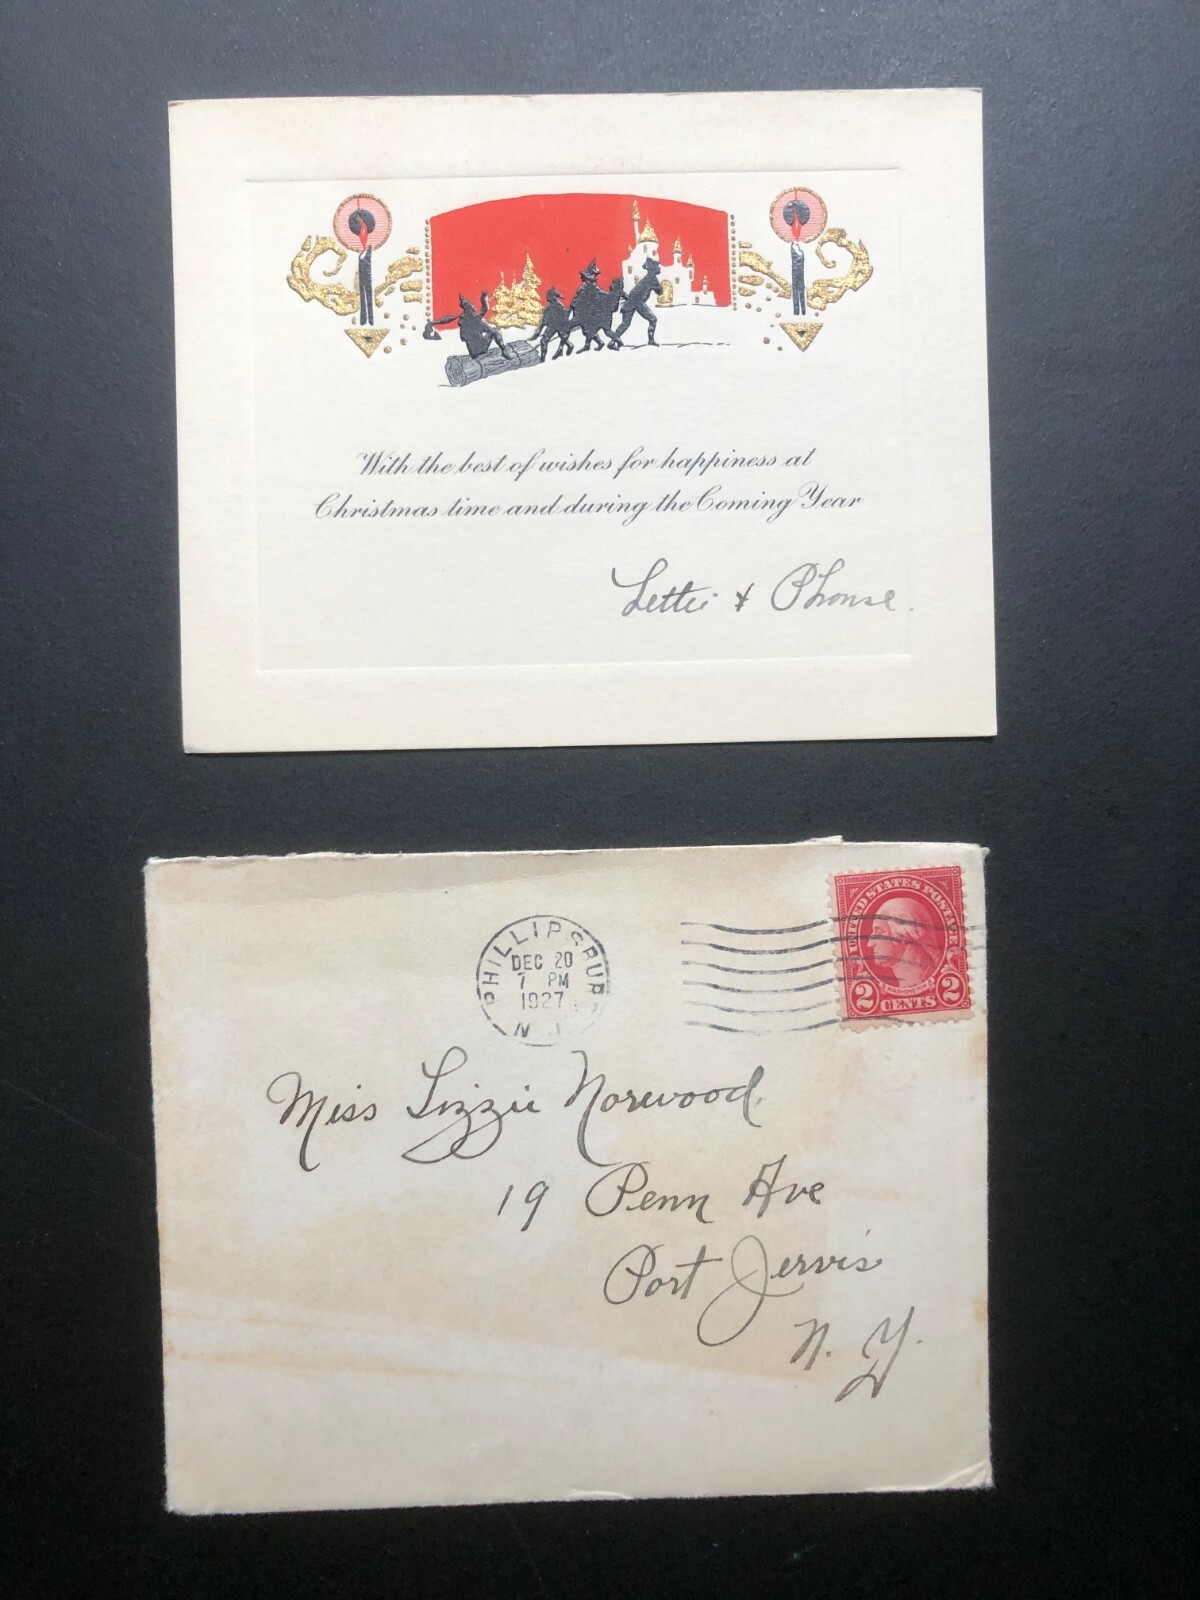 With the best of wishes for happiness at
Christmas time and during the Coming Year
Lettie &
PHILLIPSBUR
DEC 20
7 PM
1927
N.J.
UNITED STATES POSTAGE
2 CENTS 2
Miss Lizzie Norwood
19 Penn Ave
Port Jervis
N. Y.